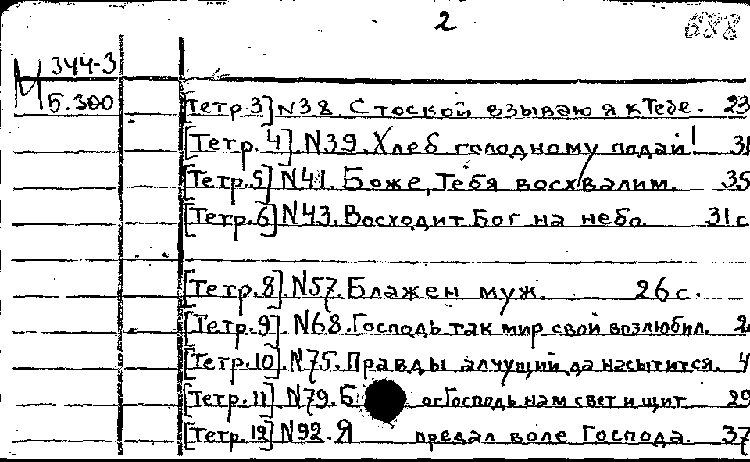 2 688
М 344-3
5.300
[Тетр.3] N38. С тоской взываю я к Тебе. 23
[Тетр.4]. N39. Хлеб голодному подай! 3
[Тетр.5] N41. Боже, Тебя восхвалим. 35
[Тетр.6] N43. Восходит Бог на небо 31 с
[Тетр.8] N57. Блажен муж. 26 с.
[Тетр.9]. N68. Господь так мир свой возлюбил. 2
[Тетр.10]. N75. Правды алчущий да насытится. 4
[Тетр.11]. N79. Б ог Господь нам свет и щит 29
[Тетр.12] N92. Я предал воле Господа. 37